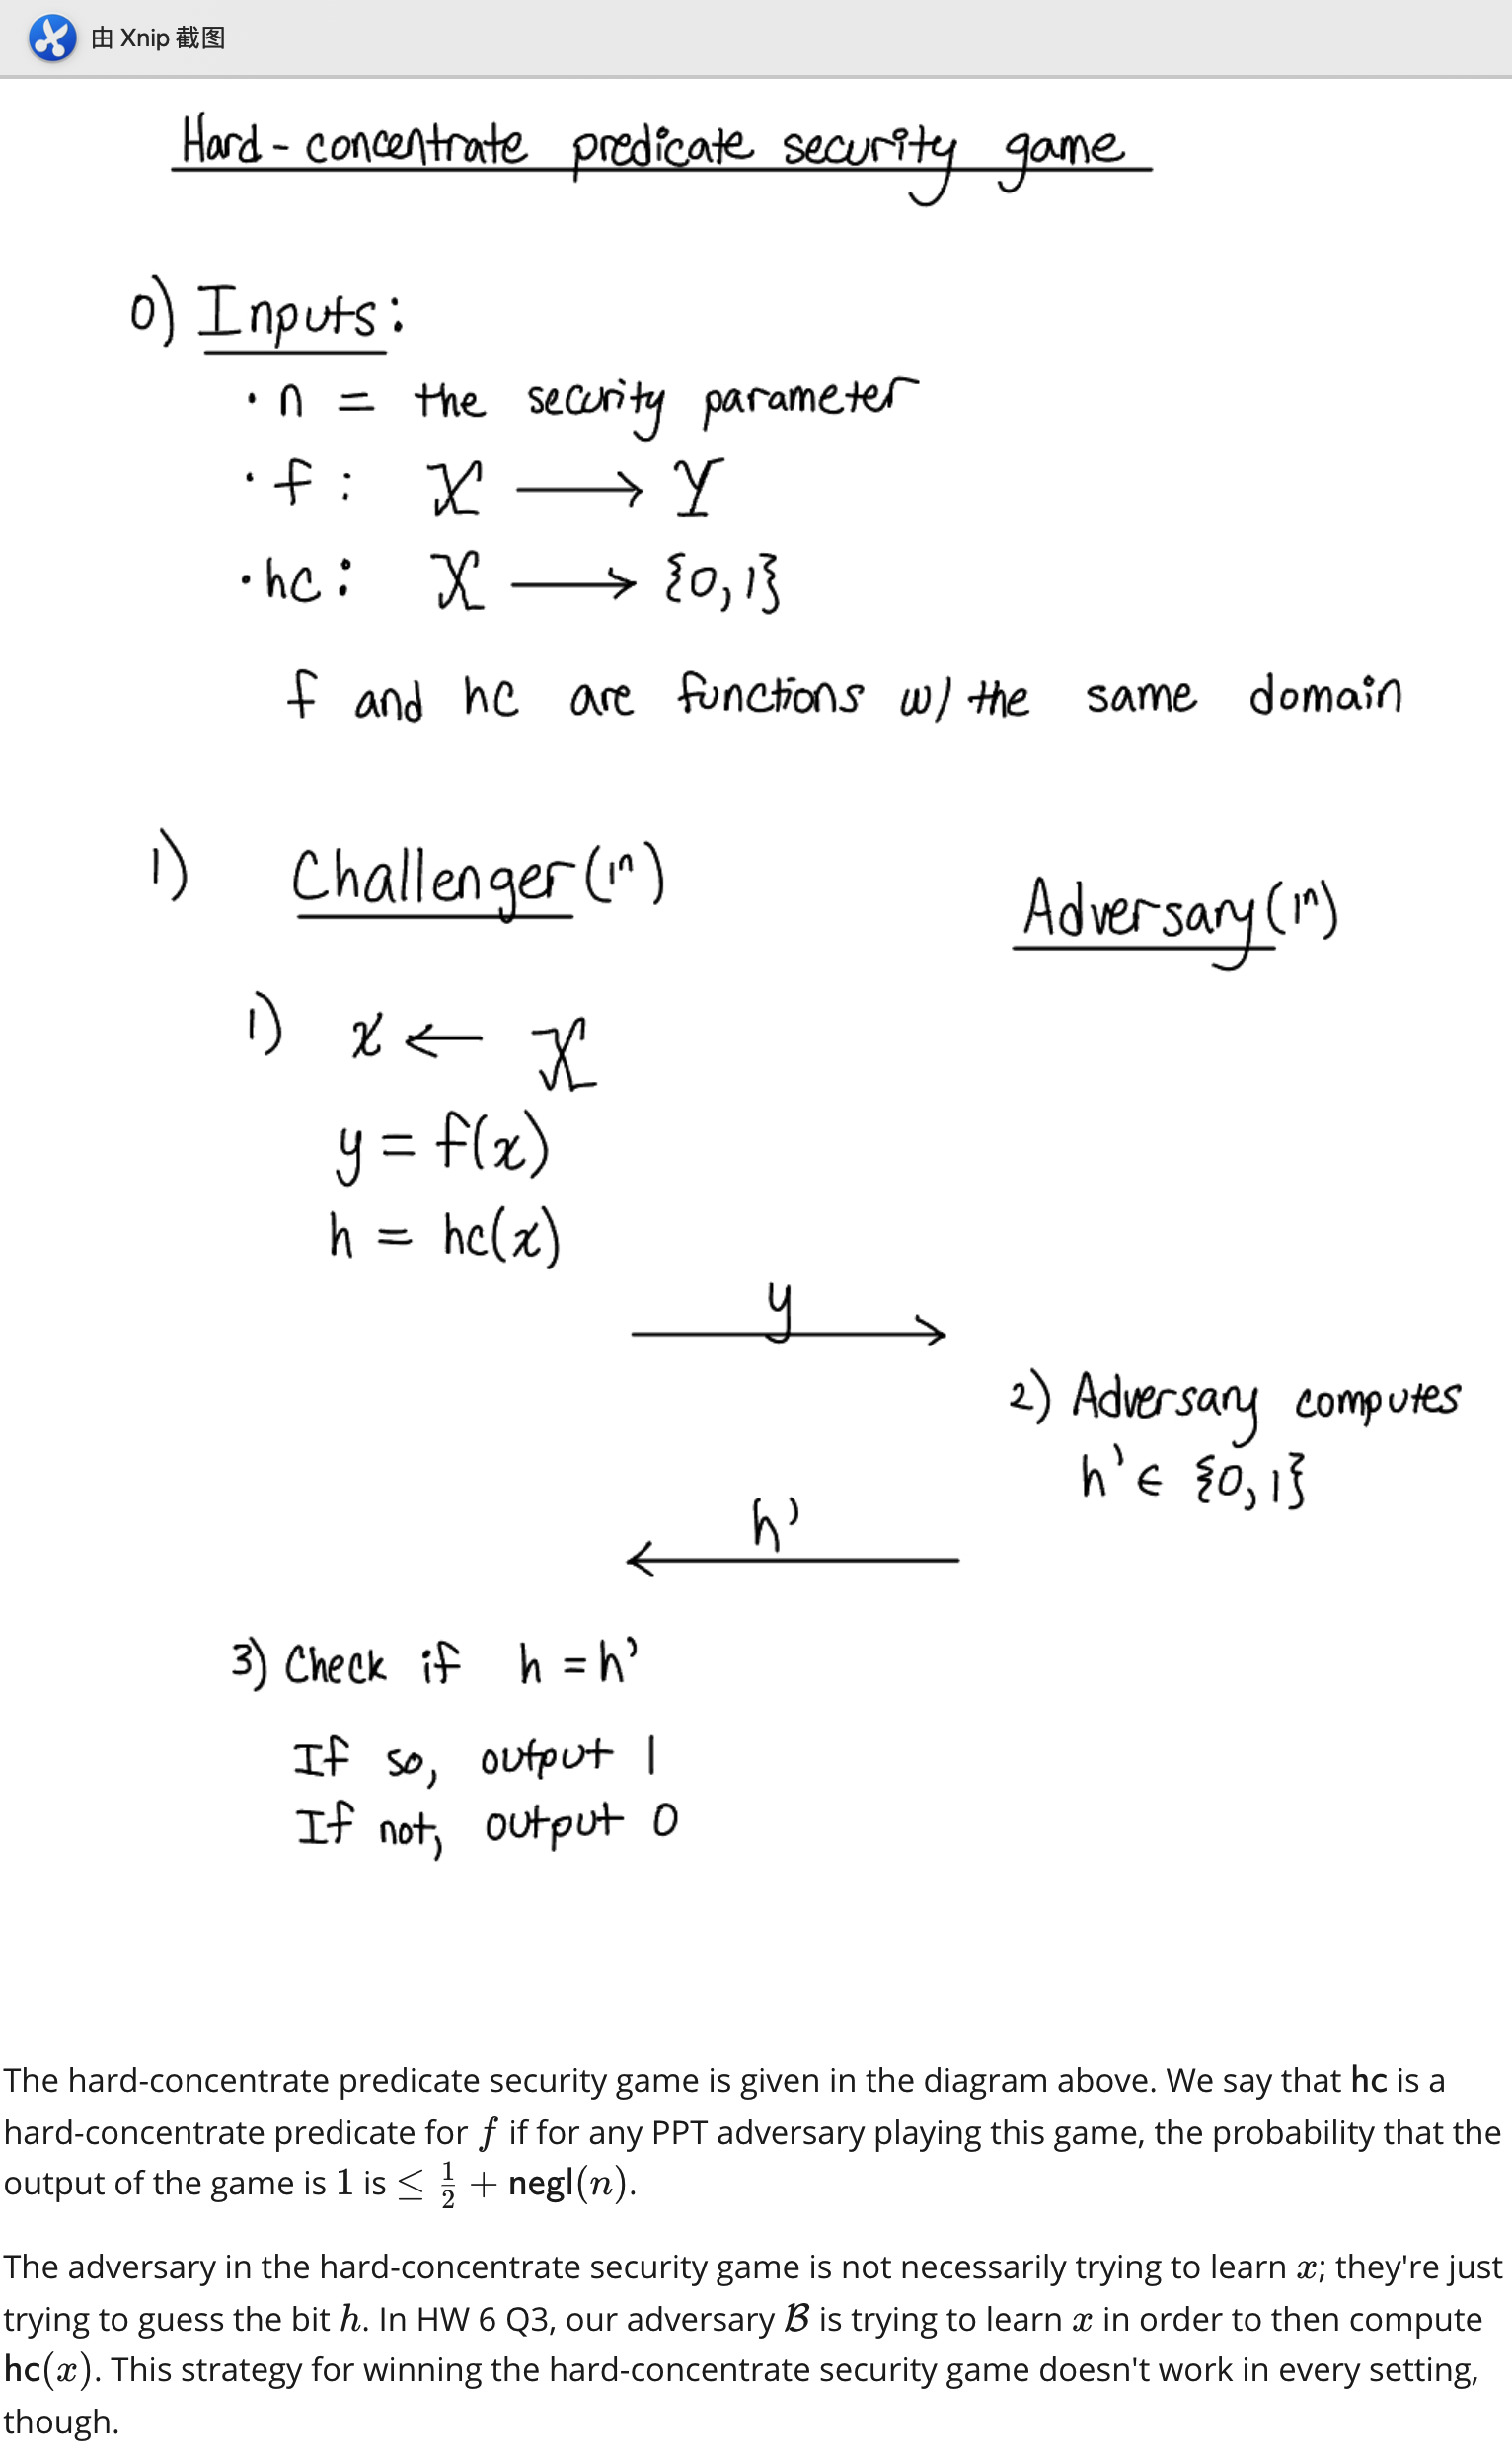 由 Xnip 截图
Hard-concentrate predicate security game
0) Inputs:
· n = the security parameter
· f: X ⟶ Y
· hc: X ⟶ {0,1}
f and hc are functions w/ the same domain
1) Challenger(1ⁿ)
Adversary(1ⁿ)
1) x ← X
y = f(x)
h = hc(x)
y
2) Adversary computes
h' ∈ {0,1}
h'
3) Check if h = h'
If so, output 1
If not, output 0
The hard-concentrate predicate security game is given in the diagram above. We say that hc is a
hard-concentrate predicate for f if for any PPT adversary playing this game, the probability that the
output of the game is 1 is ≤ 1/2 + negl(n).
The adversary in the hard-concentrate security game is not necessarily trying to learn x; they're just
trying to guess the bit h. In HW 6 Q3, our adversary ℬ is trying to learn x in order to then compute
hc(x). This strategy for winning the hard-concentrate security game doesn't work in every setting,
though.